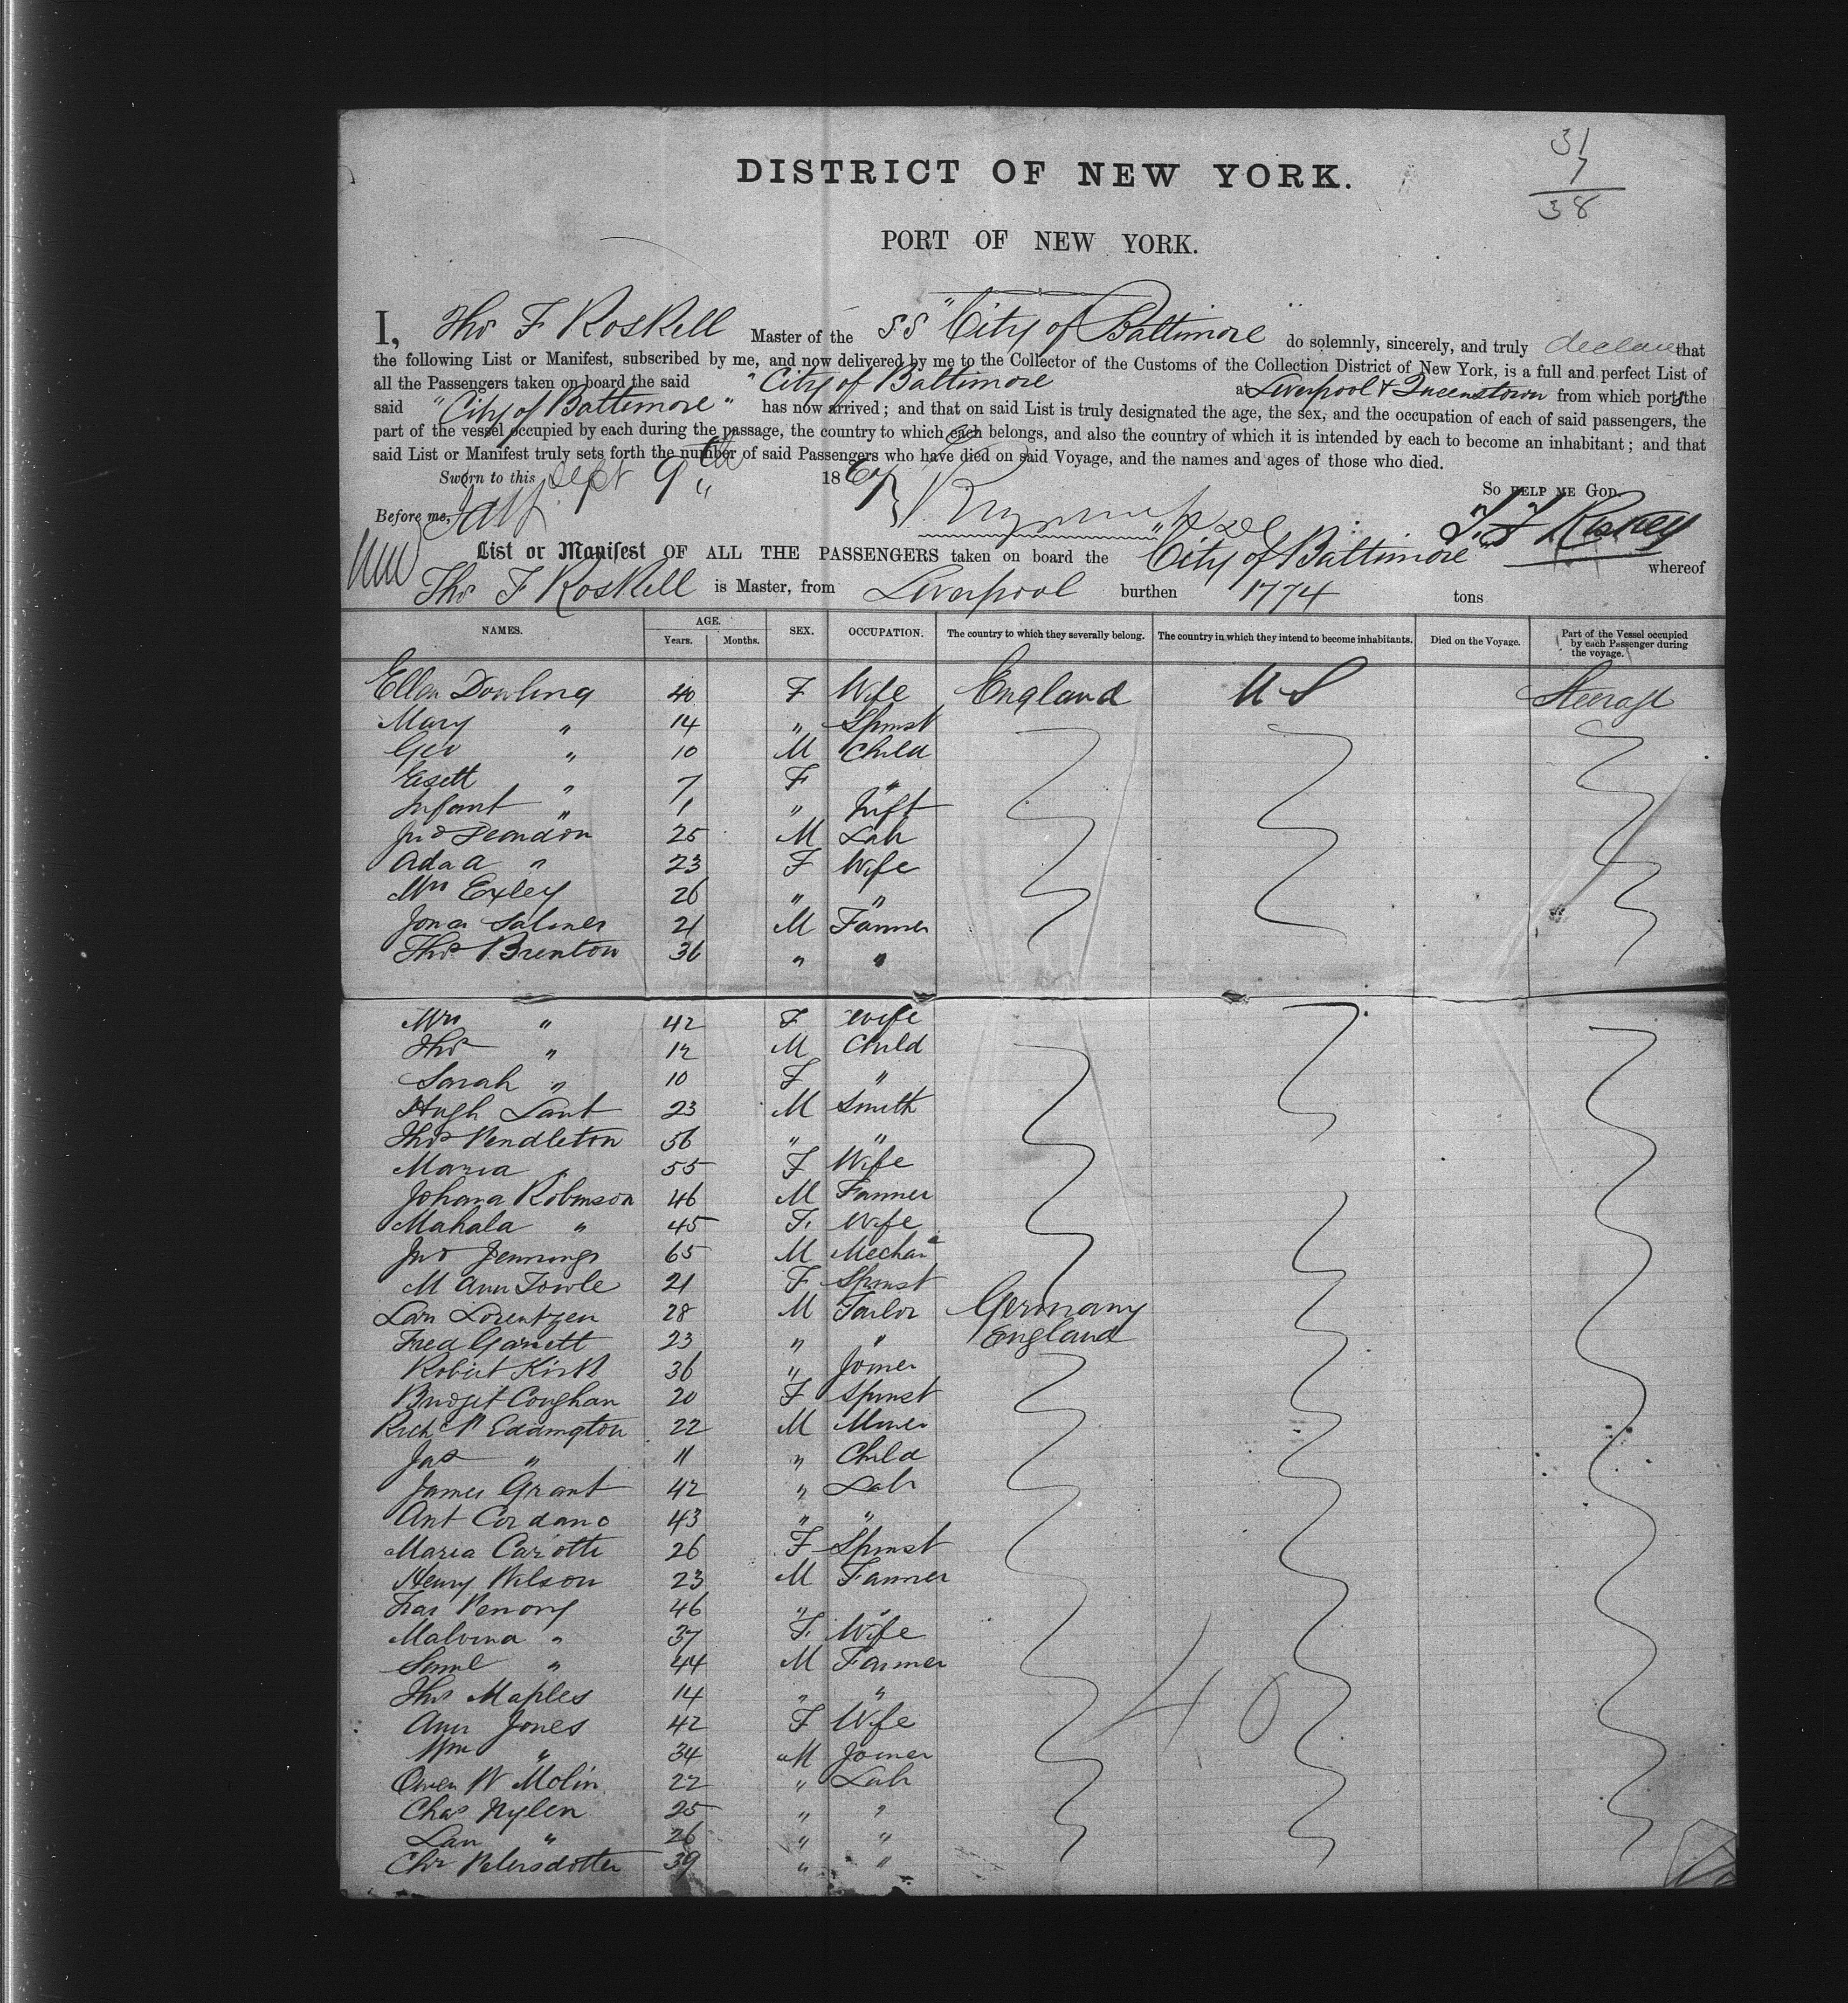 31
7
38
DISTRICT OF NEW YORK.
PORT OF NEW YORK.
I, Thos F Roskell Master of the SS "City of Baltimore do solemnly, sincerely, and truly declare that
the following List or Manifest, subscribed by me, and now delivered by me to the Collector of the Customs of the Collection District of New York, is a full and perfect List of
all the Passengers taken on board the said "City of Baltimore at Liverpool & Queenstown from which ports the
said "City of Baltimore" has now arrived; and that on said List is truly designated the age, the sex, and the occupation of each of said passengers, the
part of the vessel occupied by each during the passage, the country to which each belongs, and also the country of which it is intended by each to become an inhabitant; and that
said List or Manifest truly sets forth the number of said Passengers who have died on said Voyage, and the names and ages of those who died.
Sworn to this Sept 9th 1867 So help me God.
Before me,
List or Manifest OF ALL THE PASSENGERS taken on board the "City of Baltimore" whereof
Thos F Roskell is Master, from Liverpool burthen 1774 tons
NAMES. AGE. Years. Months. SEX. OCCUPATION. The country to which they severally belong. The country in which they intend to become inhabitants. Died on the Voyage. Part of the Vessel occupied by each Passenger during the voyage.
Ellen Dowling 40 F Wife England U S Steerage
Mary " 14 " Spinst
Geo " 10 M Child
" 7 F "
Infant " 1 " Inft
Jno 25 M Lab
Ada A " 23 F Wife
Mrs Exley 26 " "
Jonas Salmer 21 M Farmer
Thos Brenton 36 " "
Mrs " 42 F Wife
Thos " 12 M Child
Sarah " 10 F "
Hugh Lant 23 M Smith
Thos Pendleton 56 " "
Maria " 55 F Wife
Johana Robinson 46 M Farmer
Mahala " 45 F. Wife
Jno Jennings 65 M Mechan
M Ann Towle 21 F Spinst
Lars Lorentzen 28 M Tailor Germany
Fred Garrett 23 " " England
Robert Kirk 36 " Joiner
Bridget Coughan 20 F Spinst
Rich Eddington 22 M Miner
Jas " 11 " Child
James Grant 42 " Lab
Ant Cordano 43 " "
Maria Cariotti 26 F Spinst
Henry Wilson 23 M Farmer
Fras 46 " "
Malvina " 37 F. Wife
Saml " 44 M Farmer
Thos Maples 14 " "
Ann Jones 42 F Wife
Wm " 34 M Joiner
Owen W Molin 22 " Lab
Chas Nylen 25 " "
Lars " 26 " "
Chr Petersdotter 39 " "
40